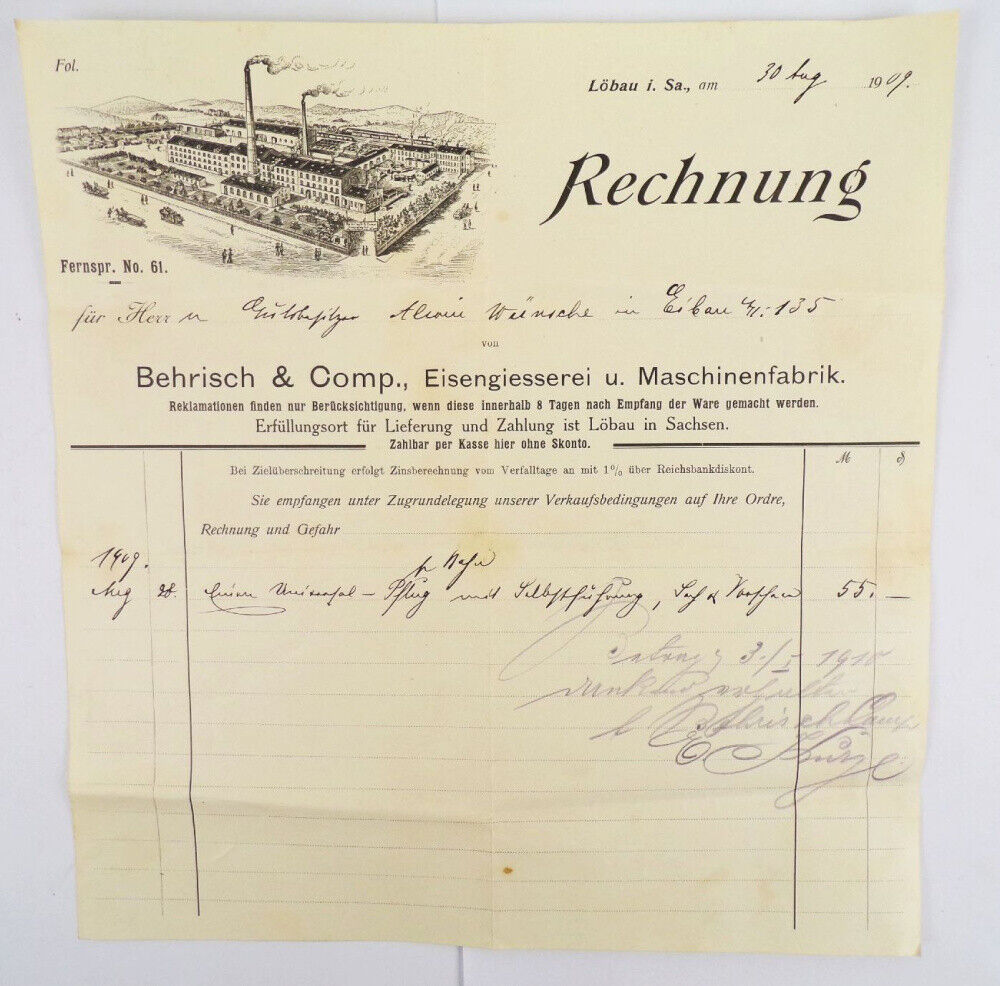 Fol.
Löbau i. Sa., am 30 Aug 1909.
Rechnung
Fernspr. No. 61.
für Herrn Gutsbesitzer Alwin Wünsche in Eibau No. 135
von
Behrisch & Comp., Eisengiesserei u. Maschinenfabrik.
Reklamationen finden nur Berücksichtigung, wenn diese innerhalb 8 Tagen nach Empfang der Ware gemacht werden.
Erfüllungsort für Lieferung und Zahlung ist Löbau in Sachsen.
Zahlbar per Kasse hier ohne Skonto.
M ₰
Bei Zielüberschreitung erfolgt Zinsberechnung vom Verfalltage an mit 1% über Reichsbankdiskont.
Sie empfangen unter Zugrundelegung unserer Verkaufsbedingungen auf Ihre Ordre,
Rechnung und Gefahr
1909. p. Bahn
Aug 28. Einen Universal-Pflug mit Selbstführung, Sech & Vorschäler 55.—
Betrag 3./I 1910
dankend erhalten
Behrisch & Comp